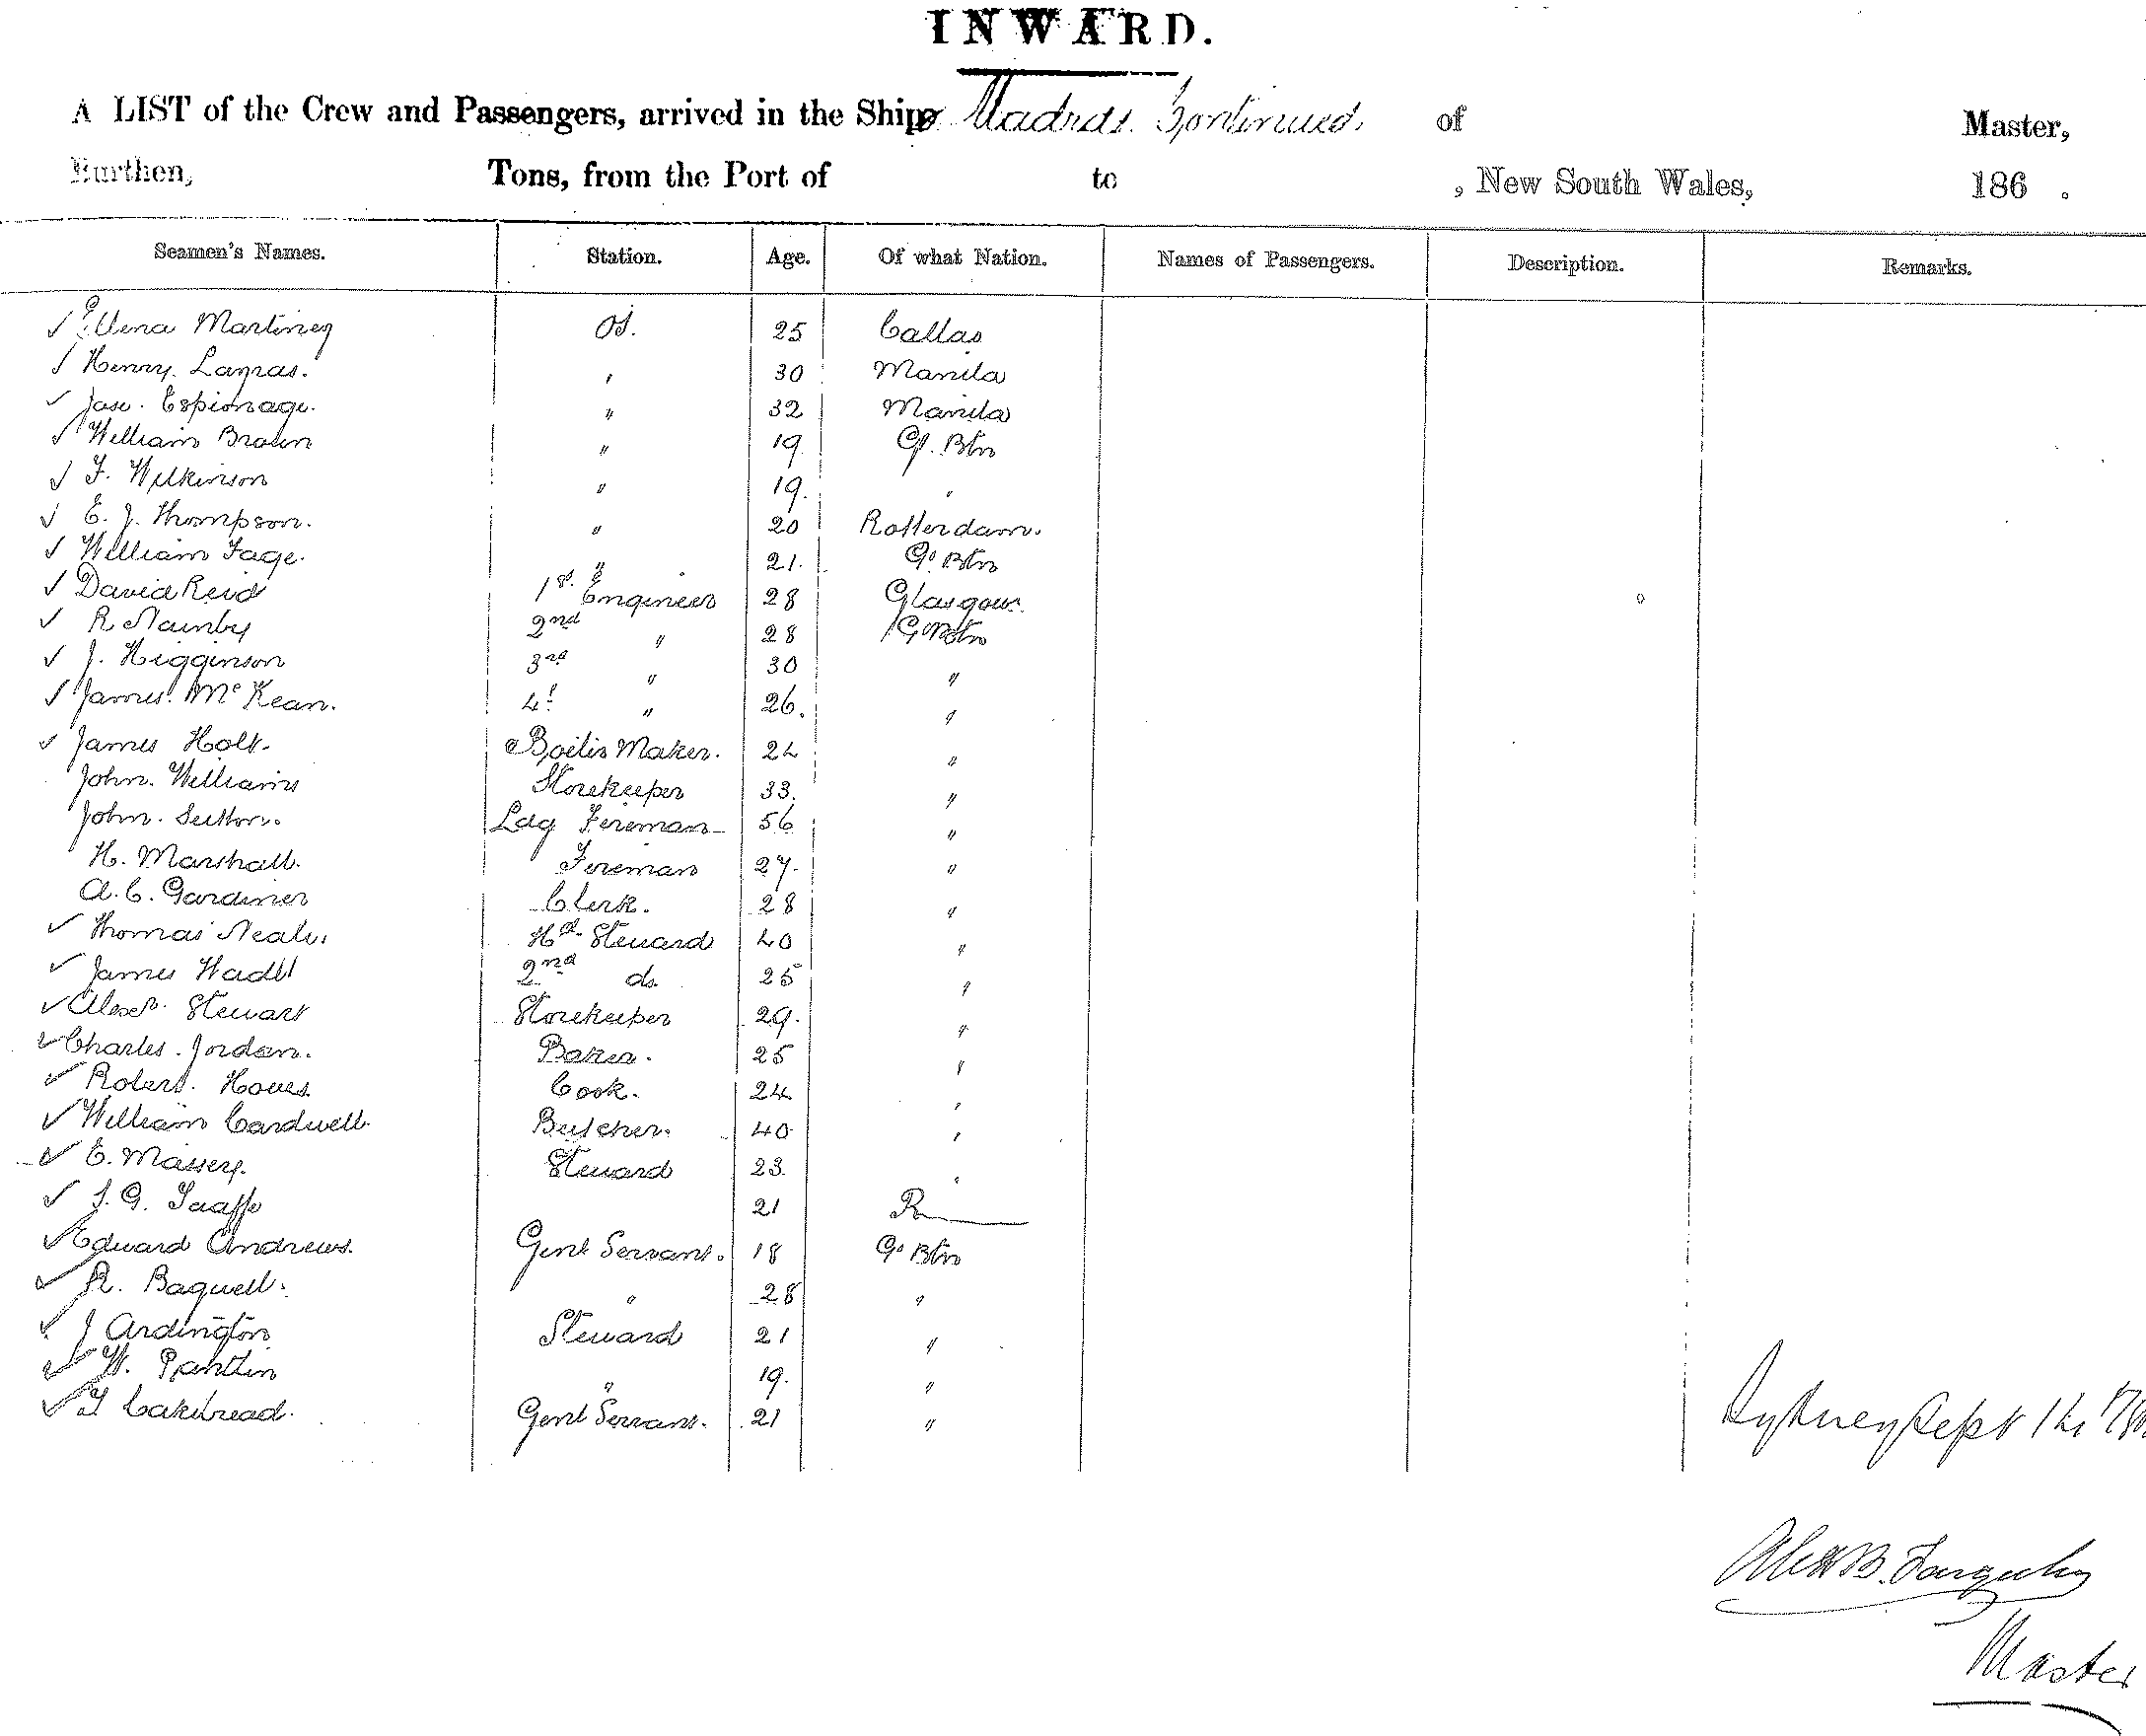 INWARD.
A LIST of the Crew and Passengers, arrived in the Ship Madras Continued of Master,
Burthen, Tons, from the Port of to , New South Wales, 186 .
Seamen's Names. Station. Age. Of what Nation. Names of Passengers. Description. Remarks.
Martinez 25 Callao
Henry. 30 Manila
" 32 Manila
William Brown " 19 Gt. Btn
F. Wilkinson " 19. "
E. J. Thompson. " 20 Rotterdam.
William " 21. Gt Btn
David Reid 1st Engineer 28 Glasgow.
R 2nd " 28 Gt Btn
J. Higginson 3rd " 30 "
James. McKean. 4t " 26. "
James Holt. Boiler Maker. 24 "
John. Williams Storekeeper 33. "
John. Sutton. Ldg Fireman 56 "
H. Marshall. Fireman 27. "
A. C. Gardiner Clerk. 28 "
Thomas Neale. Hd Steward 40 "
James 2nd do. 25 "
Alexr. Stewart Storekeeper 29. "
Charles. Jordan. Baker. 25 "
Robert. Howes. Cook. 24 "
William Cardwell. Butcher. 40 "
E. Massey. Steward 23. "
G. Taaffe 21
Edward Andrews. Genl Servant. 18 Gt Btn
R. Bagwell. " 28 "
J Ardington Steward 21 "
W. " 19. "
Cakebread. Genl Servant. 21 "
Sydney Sept
Alex B. Farquhar
Master